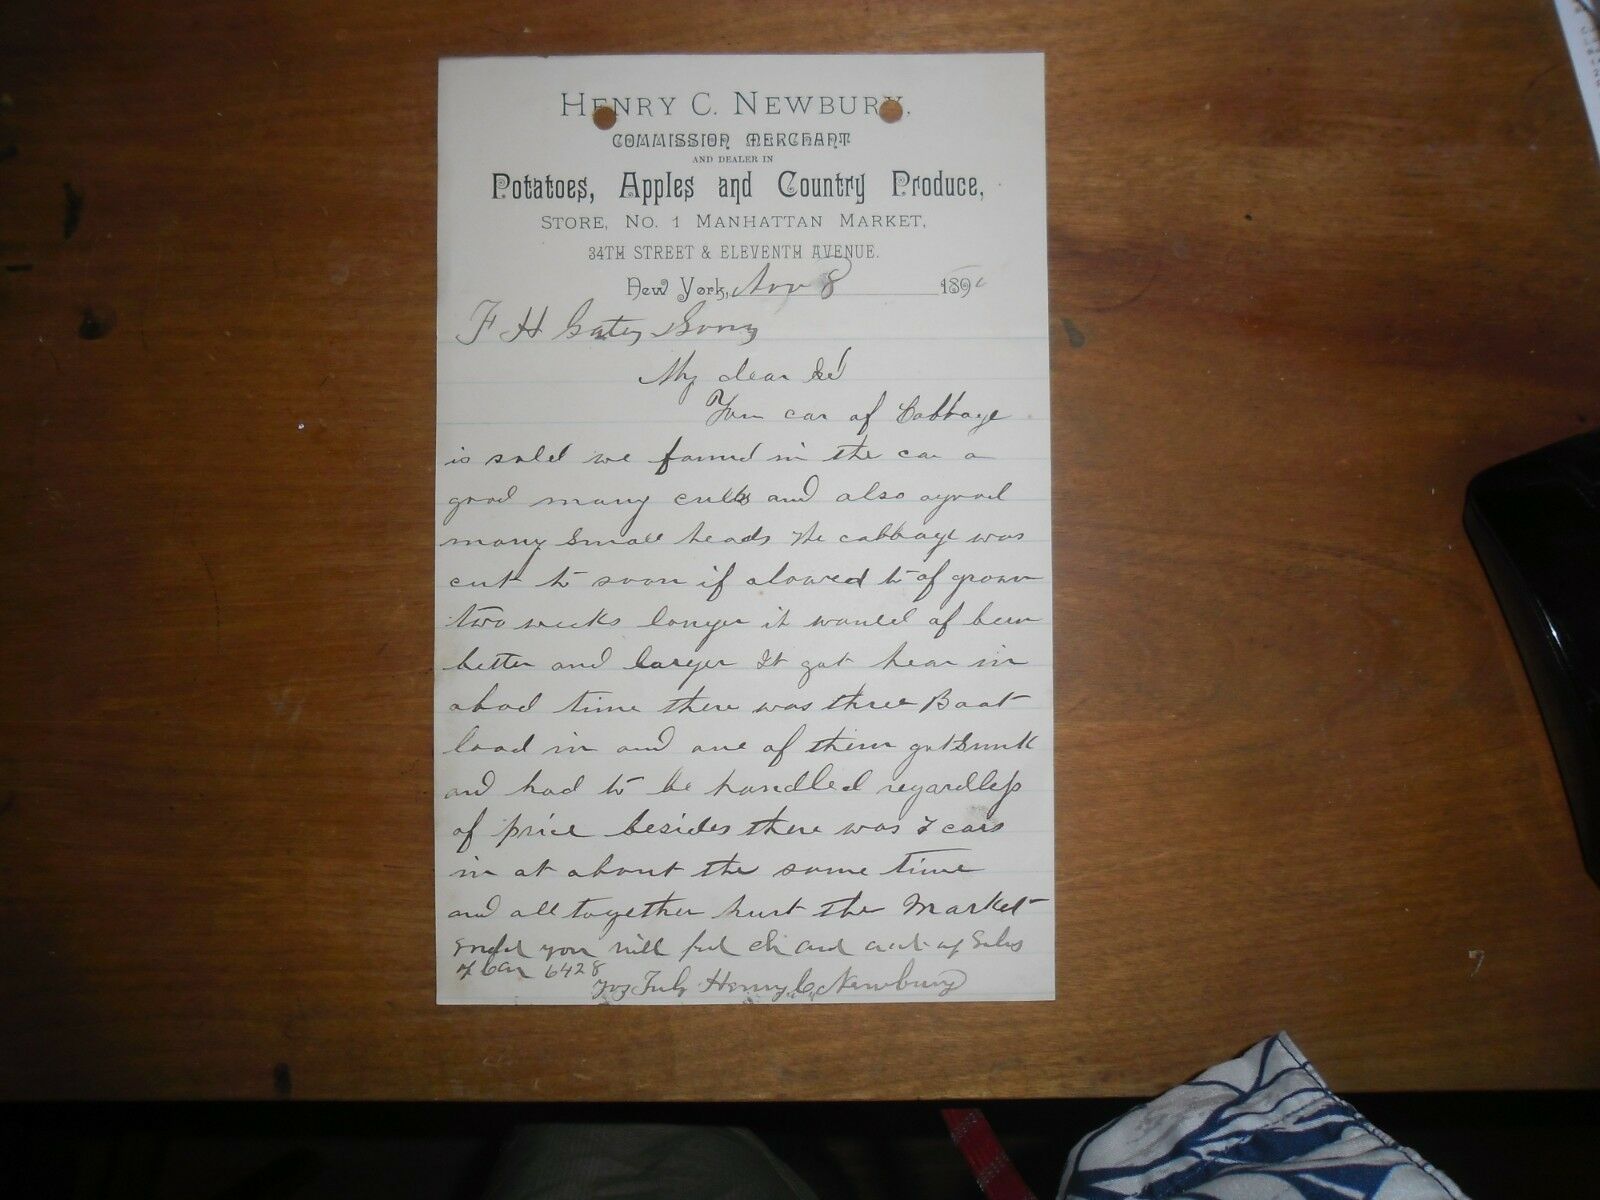 HENRY C. NEWBURY.
COMMISSION MERCHANT
AND DEALER IN
Potatoes, Apples and Country Produce,
STORE, NO. 1 MANHATTAN MARKET,
34TH STREET & ELEVENTH AVENUE.
New York, Nov 8 189
F H Gates Sons
My dear
Your car of Cabbage
is sold we found in the car a
good many culls and also a good
many small heads the cabbage was
cut to soon if alowed to of grown
two weeks longer it would of been
better and larger It got hear in
a bad time there was three Boat
load in and one of them got Sunk
and had to be handled regardless
of price besides there was 7 cars
in at about the same time
and all together hurt the Market
you will find ck and acct of Sales
of Car 6428
Henry C Newbury